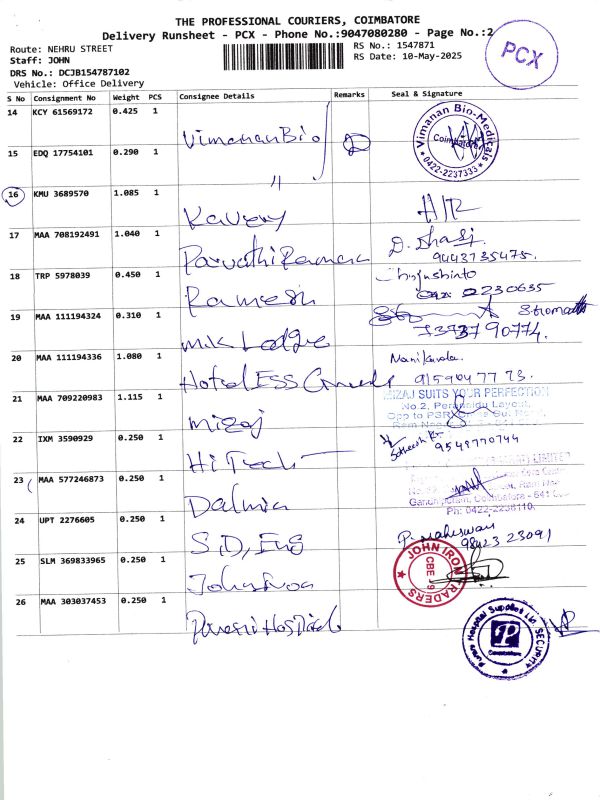 THE PROFESSIONAL COURIERS, COIMBATORE
Delivery Runsheet - PCX - Phone No.:9047080280 - Page No.:2
PCX
Route: NEHRU STREET
RS No.: 1547871
Staff: JOHN
RS Date: 10-May-2025
DRS No.: DCJB154787102
Vehicle: Office Delivery
S No Consignment No Weight PCS Consignee Details Remarks Seal & Signature
14 KCY 61569172 0.425 1 Vimanan Bio
Vimanan Bio-Medicals Coimbatore 0422-2237333
15 EDQ 17754101 0.290 1 "
16 KMU 3689570 1.085 1 Kavery
17 MAA 708192491 1.040 1 Parvathi Ramana D. Shasi
9443735475.
18 TRP 5978039 0.450 1 Ramesh
2230635
19 MAA 111194324 0.310 1 MLK Lodge
7373790774.
20 MAA 111194336 1.080 1 Hotel ESS Grands
9159047773.
21 MAA 709220983 1.115 1 Mizaj
MIZAJ SUITS YOUR PERFECTION
No.2, Layout,
22 IXM 3590929 0.250 1 HiTech
9548770744
23 MAA 577246873 0.250 1 Dalmia
LIMITED
Ph: 0422-2236110
24 UPT 2276605 0.250 1 S.D, Eng P. Maheswari
98423 23091
25 SLM 369833965 0.250 1
JOHN IRON TRADERS CBE 9
26 MAA 303037453 0.250 1 Hospital
Hospital SECURITY P